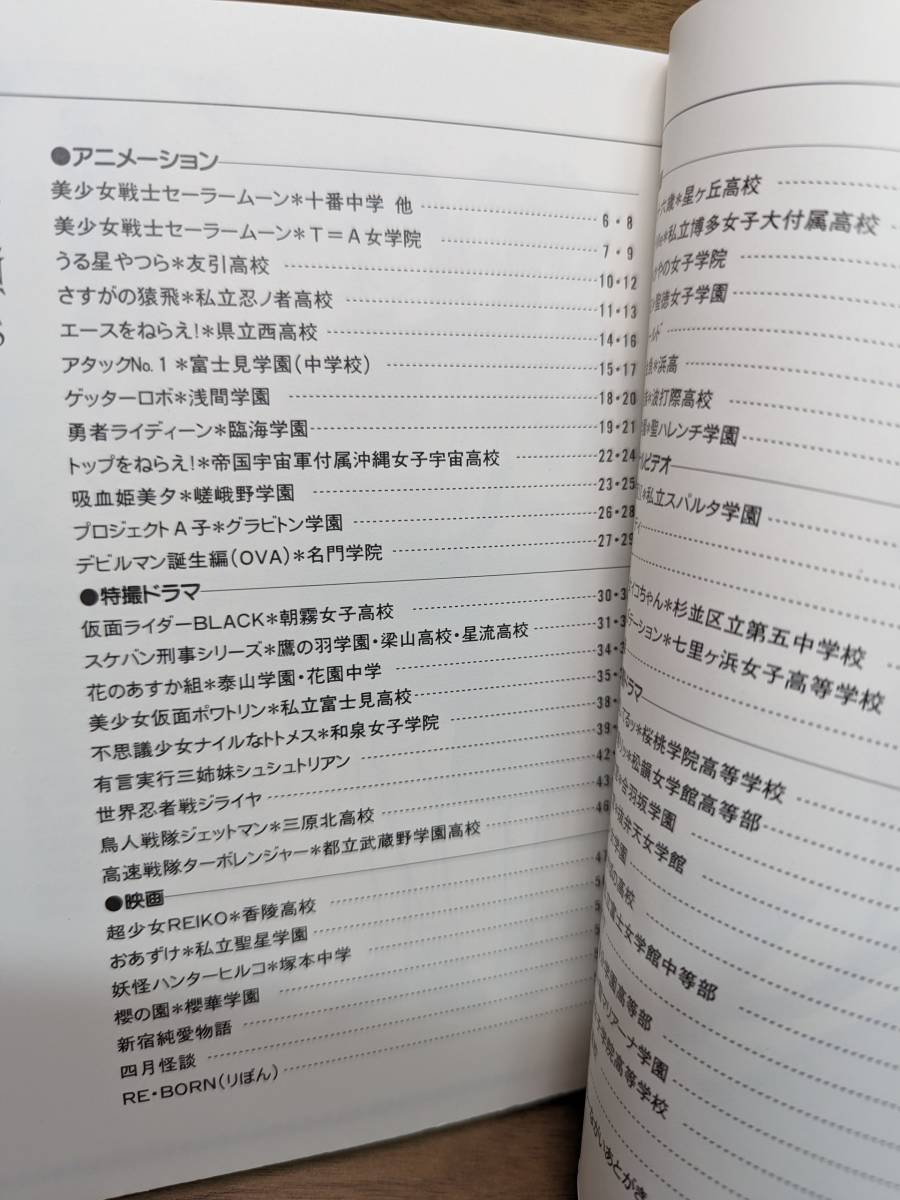 ●アニメーション
美少女戦士セーラームーン＊十番中学 他 6・8
美少女戦士セーラームーン＊T＝A女学院 7・9
うる星やつら＊友引高校 10・12
さすがの猿飛＊私立忍ノ者高校 11・13
エースをねらえ!＊県立西高校 14・16
アタックNo.1＊富士見学園(中学校) 15・17
ゲッターロボ＊浅間学園 18・20
勇者ライディーン＊臨海学園 19・21
トップをねらえ!＊帝国宇宙軍付属沖縄女子宇宙高校 22・24
吸血姫美夕＊嵯峨野学園 23・25
プロジェクトA子＊グラビトン学園 26・28
デビルマン誕生編(OVA)＊名門学院 27・29
●特撮ドラマ
仮面ライダーBLACK＊朝霧女子高校 30・3
スケバン刑事シリーズ＊鷹の羽学園・梁山高校・星流高校 31・3
花のあすか組＊泰山学園・花園中学 34・3
美少女仮面ポワトリン＊私立富士見高校 35・
不思議少女ナイルなトトメス＊和泉女子学院 38・
有言実行三姉妹シュシュトリアン 39・
世界忍者戦ジライヤ 42・
鳥人戦隊ジェットマン＊三原北高校 43
高速戦隊ターボレンジャー＊都立武蔵野学園高校 46
●映画
超少女REIKO＊香陵高校 4
おあずけ＊私立聖星学園 5
妖怪ハンターヒルコ＊塚本中学 5
櫻の園＊櫻華学園
新宿純愛物語
四月怪談
RE・BORN(りぼん)
六歳＊星ヶ丘高校
＊私立博多女子大付属高校
やの女子学院
聖徳女子学園
ールド
＊浜高
＊波打際高校
＊聖ハレンチ学園
ルビデオ
＊私立スパルタ学園
ティ
イコちゃん＊杉並区立第五中学校
テーション＊七里ヶ浜女子高等学校
ドラマ
てるッ＊桜桃学院高等学校
＊松韻女学館高等部
＊合羽坂学園
弁天女学館
学園
の高校
富士女学館中等部
学園高等部
マリアーナ学園
学院高等学校
あとがき